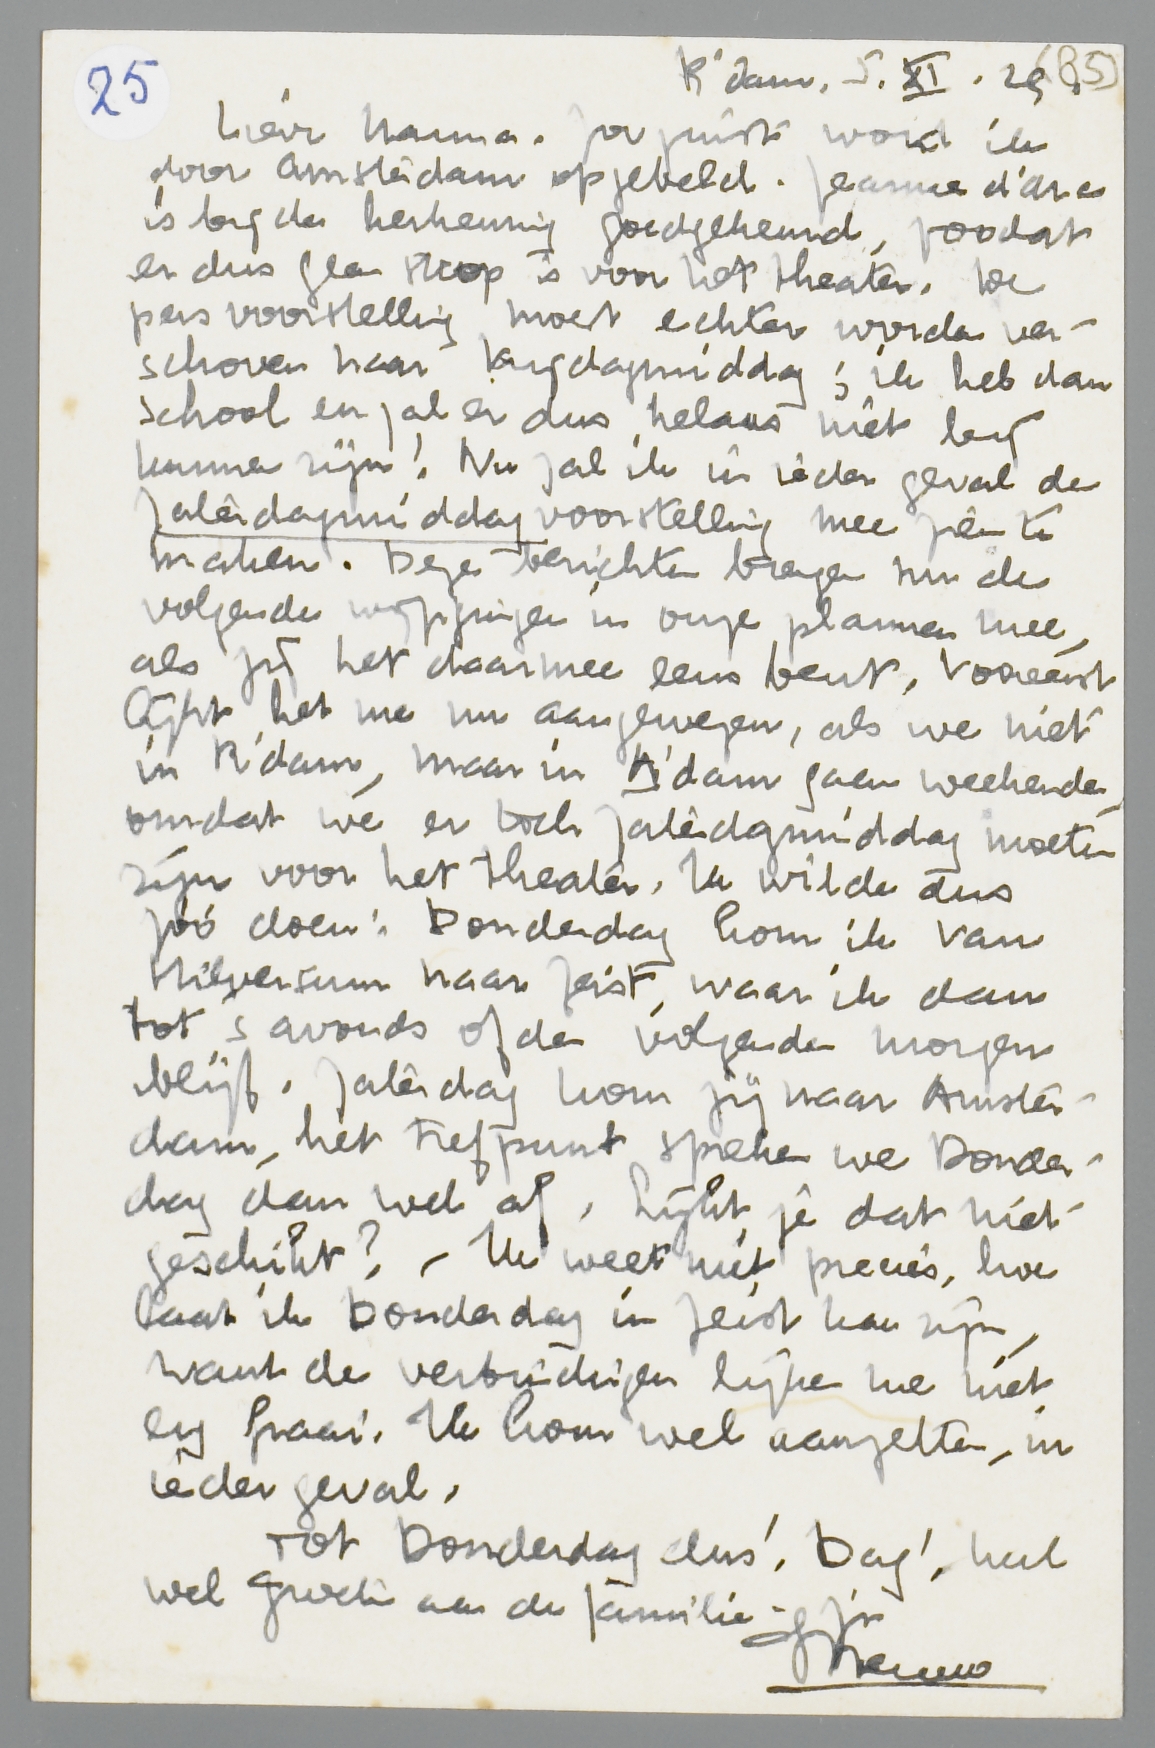 25
R'dam, 5. XI. 29. (85)
Lieve Hanna. Zoo juist word ik
door Amsterdam opgebeld. Jeanne d'Arc
is bij de herkeuring goedgekeurd, zoodat
er dus geen strop is voor het theater. De
pers voorstelling moest echter worden ver-
schoven naar Vrijdagmiddag; ik heb dan
school en zal er dus helaas niet bij
kunnen zijn! Nu zal ik in ieder geval de
Zaterdagmiddag voorstelling mee zien te
maken. Deze berichten brengen nu de
volgende wijzigingen in onze plannen mee,
als jij het daarmee eens bent. Vooreerst
lijkt het me nu aangewezen, als we niet
in R'dam, maar in A'dam gaan weekenden,
omdat we er toch Zaterdagmiddag moeten
zijn voor het theater. Ik wilde dus
zóó doen: Donderdag kom ik van
Hilversum naar Zeist, waar ik dan
tot 's avonds of den volgenden morgen
blijf. Zaterdag kom jij naar Amster-
dam, het trefpunt spreken we Donder-
dag dan wel af. Lijkt je dat niet
geschikt? – Ik weet niet precies, hoe
laat ik Donderdag in Zeist kan zijn,
want de verbindingen lijken me niet
erg fraai. Ik kom wel aanzetten, in
ieder geval.
Tot Donderdag dus! Dag!, heel
veel groeten aan de familie
Menno